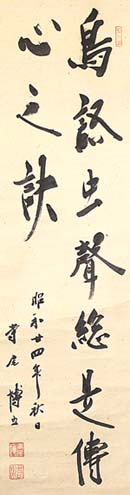 鳥語虫聲總是傳
心之訣
昭和廿四年秋日
常尾博五